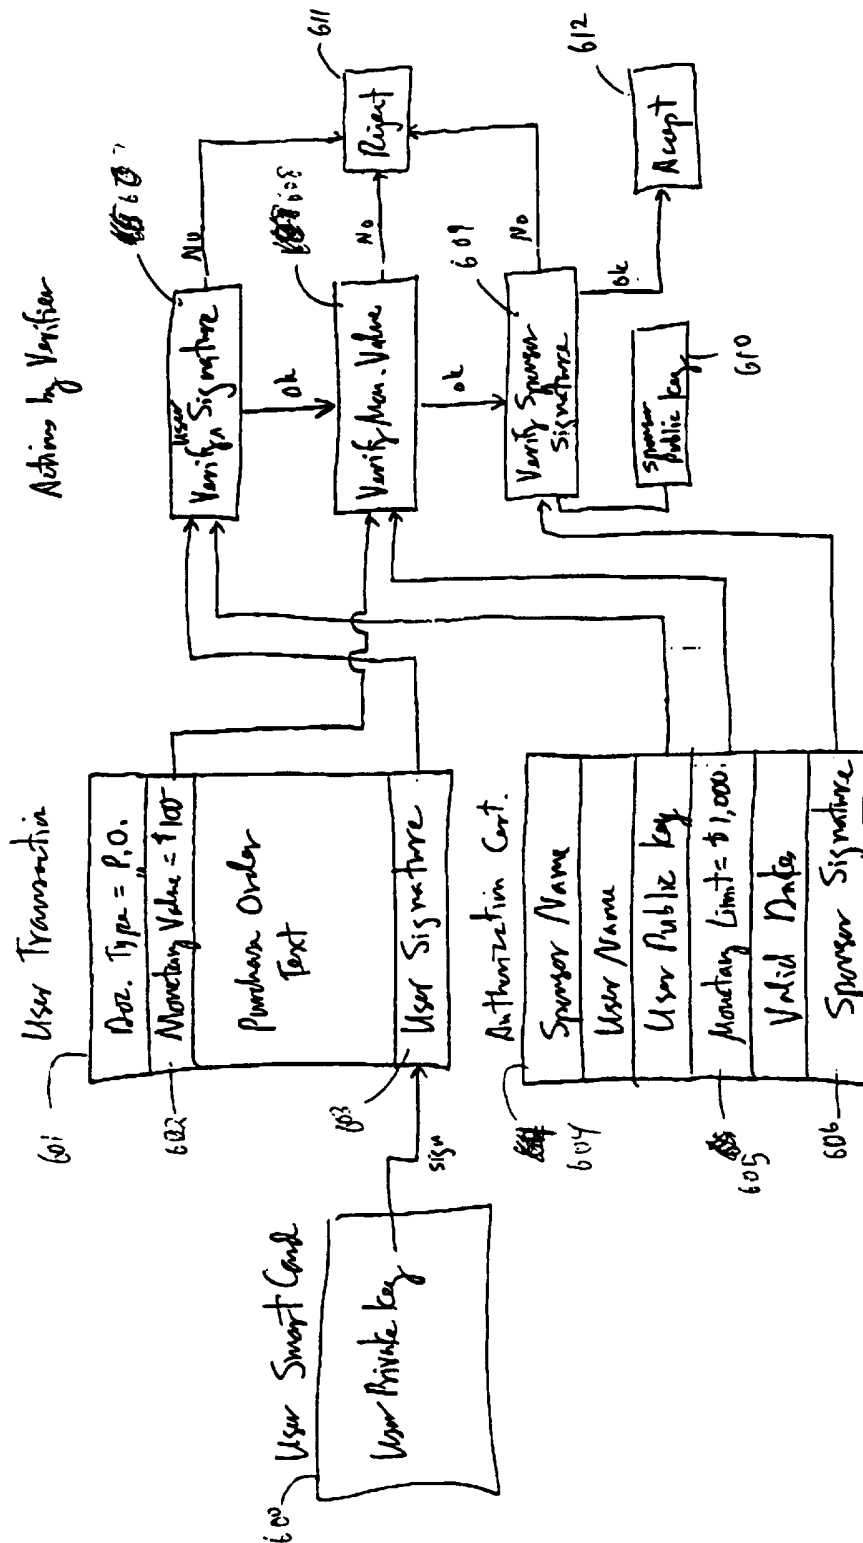 User Smart Card
600
User Private Key
sign
User Transaction
601
Doc. Type = P.O.
Monetary Value = $100
602
Purchase Order
Text
603
User Signature
Authorization Cert.
604
Sponsor Name
User Name
User Public Key
Monetary Limit = $1,000.
605
Valid Dates
606
Sponsor Signature
Actions by Verifier
607
User
Verify ^ Signature
No
OK
608
Verify Mon. Value
No
OK
609
Verify Sponsor
Signature
No
OK
Sponsor
Public Key
610
611
Reject
612
Accept